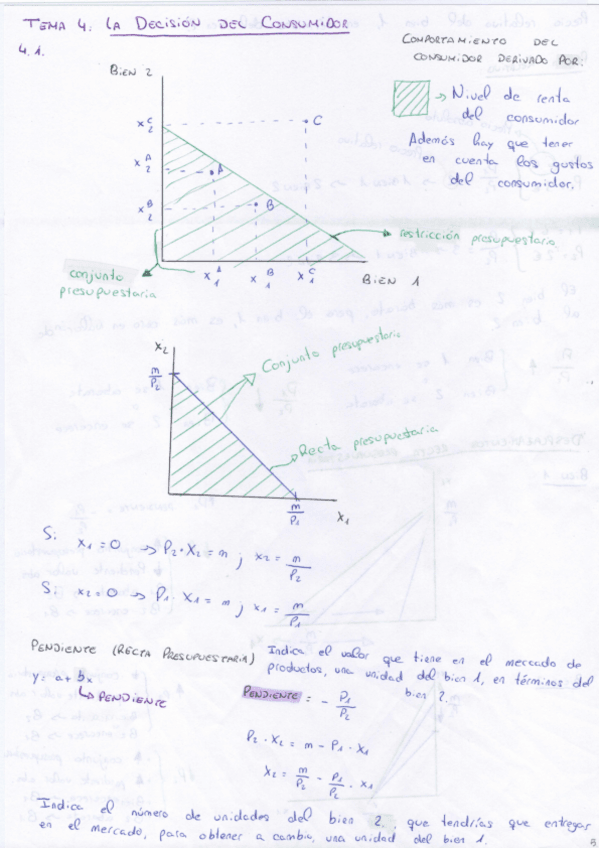 TEMA 4. LA DECISIÓN DEL CONSUMIDOR
4.1.
COMPORTAMIENTO DEL
CONSUMIDOR DERIVADO POR:
→ Nivel de renta
del consumidor
Además hay que tener
en cuenta los gustos
del consumidor.
BIEN 2
x₂ᶜ
x₂ᴬ
x₂ᴮ
C
A
B
restricción presupuestaria
conjunto
presupuestaria
x₁ᴬ x₁ᴮ x₁ᶜ
BIEN 1
x₂
m/P₂
Conjunto presupuestario
Recta presupuestaria
m/P₁
x₁
Si x₁ = 0 → P₂·X₂ = m ; x₂ = m/P₂
Si x₂ = 0 → P₁·X₁ = m ; x₁ = m/P₁
PENDIENTE (RECTA PRESUPUESTARIA) Indica el valor que tiene en el mercado de
productos, una unidad del bien 1, en términos del
bien 2.
y = a + bx
↳ PENDIENTE
PENDIENTE = - P₁/P₂
P₂·X₂ = m - P₁·X₁
X₂ = m/P₂ - P₁/P₂ · X₁
Indica el número de unidades del bien 2, que tendrías que entregar
en el mercado, para obtener a cambio, una unidad del bien 1.
5